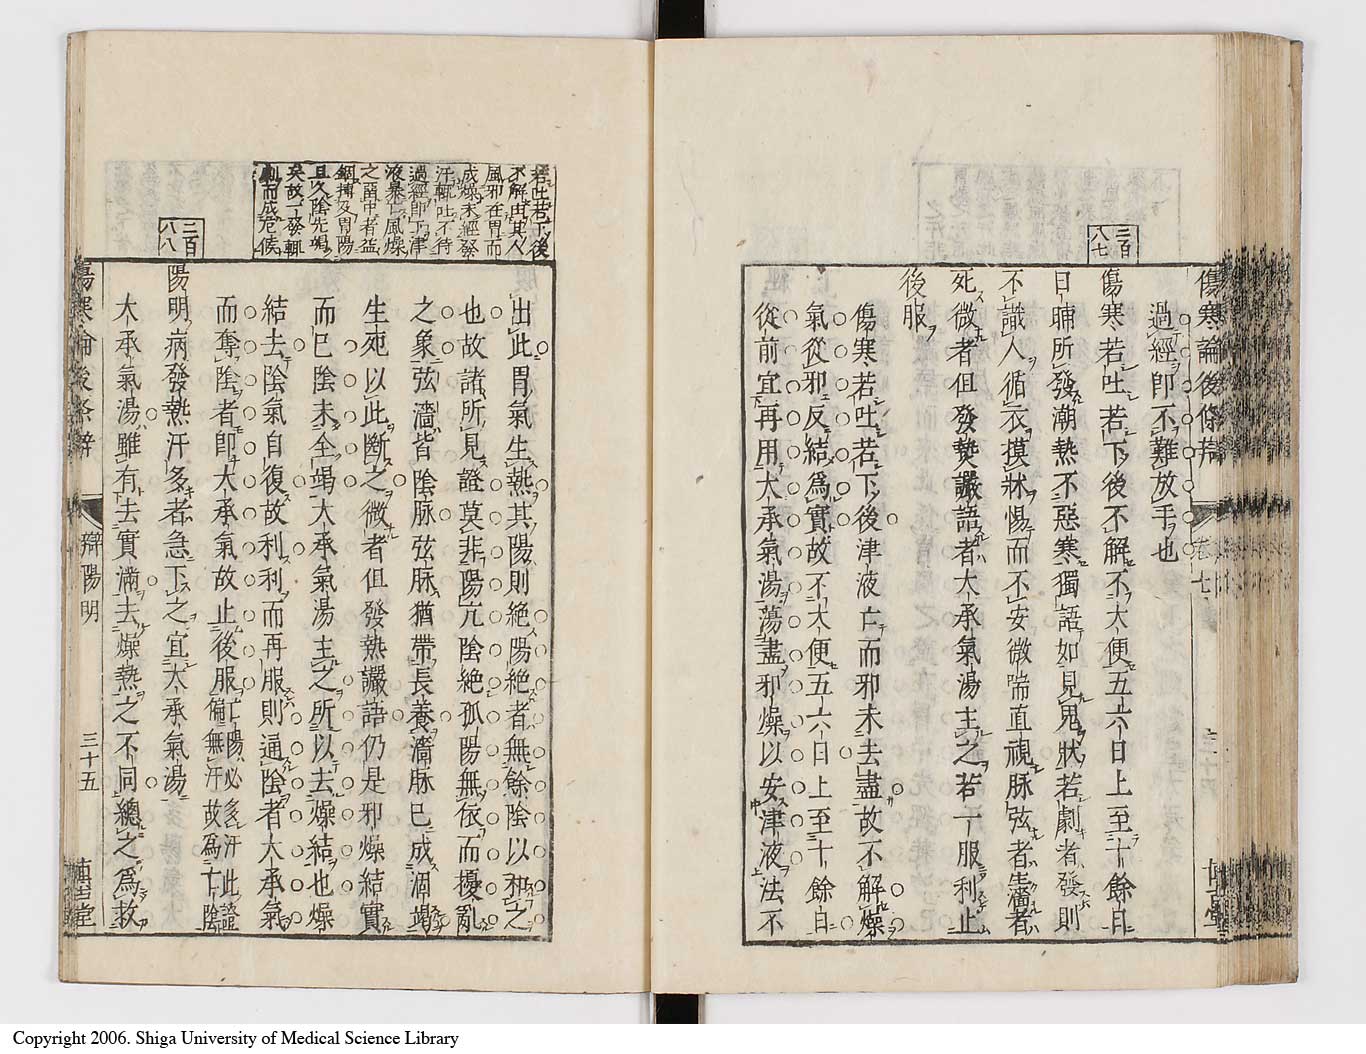 傷寒論後條辨 卷七
三百八七
過經即不難放手也
傷寒若吐若下後不解不大便五六日上至十餘日
日晡所發潮熱不惡寒獨語如見鬼狀若劇者發則
不識人循衣摸牀惕而不安微喘直視脉弦者生濇者
死微者但發熱譫語者大承氣湯主之若一服利止
後服
傷寒若吐若下後津液亡而邪未去盡故不解燥
氣從邪反結爲實故不大便五六日上至十餘日
從前宜再用大承氣湯蕩盡邪燥以安津液法不
若吐若下後
不解由其人
風邪在胃而
成燥未經發
汗輒吐不待
過經即下津
液暴亡風燥
之留中者益
錮搏及胃陽
且久陰先竭
矣故一發輒
劇而成危候
出此胃氣生熱其陽則絶陽絶者無餘陰以和之
也故諸所見證莫非陽亢陰絶孤陽無依而擾亂
之象弦濇皆陰脉弦脉猶帶長養濇脉已成涸竭
生死以此斷之微者但發熱譫語仍是邪燥結實
而已陰未全竭大承氣湯主之所以去燥結也燥
結去陰氣自復故利利而再服則逼陰者大承氣
而奪陰者即大承氣故止後服亡陽必多汗此證偏無汗故爲亡陰
二百八八
陽明病發熱汗多者急下之宜大承氣湯
大承氣湯雖有去實滿去燥熱之不同總之爲救
傷寒論後條辨 辯陽明 三十五
Copyright 2006. Shiga University of Medical Science Library